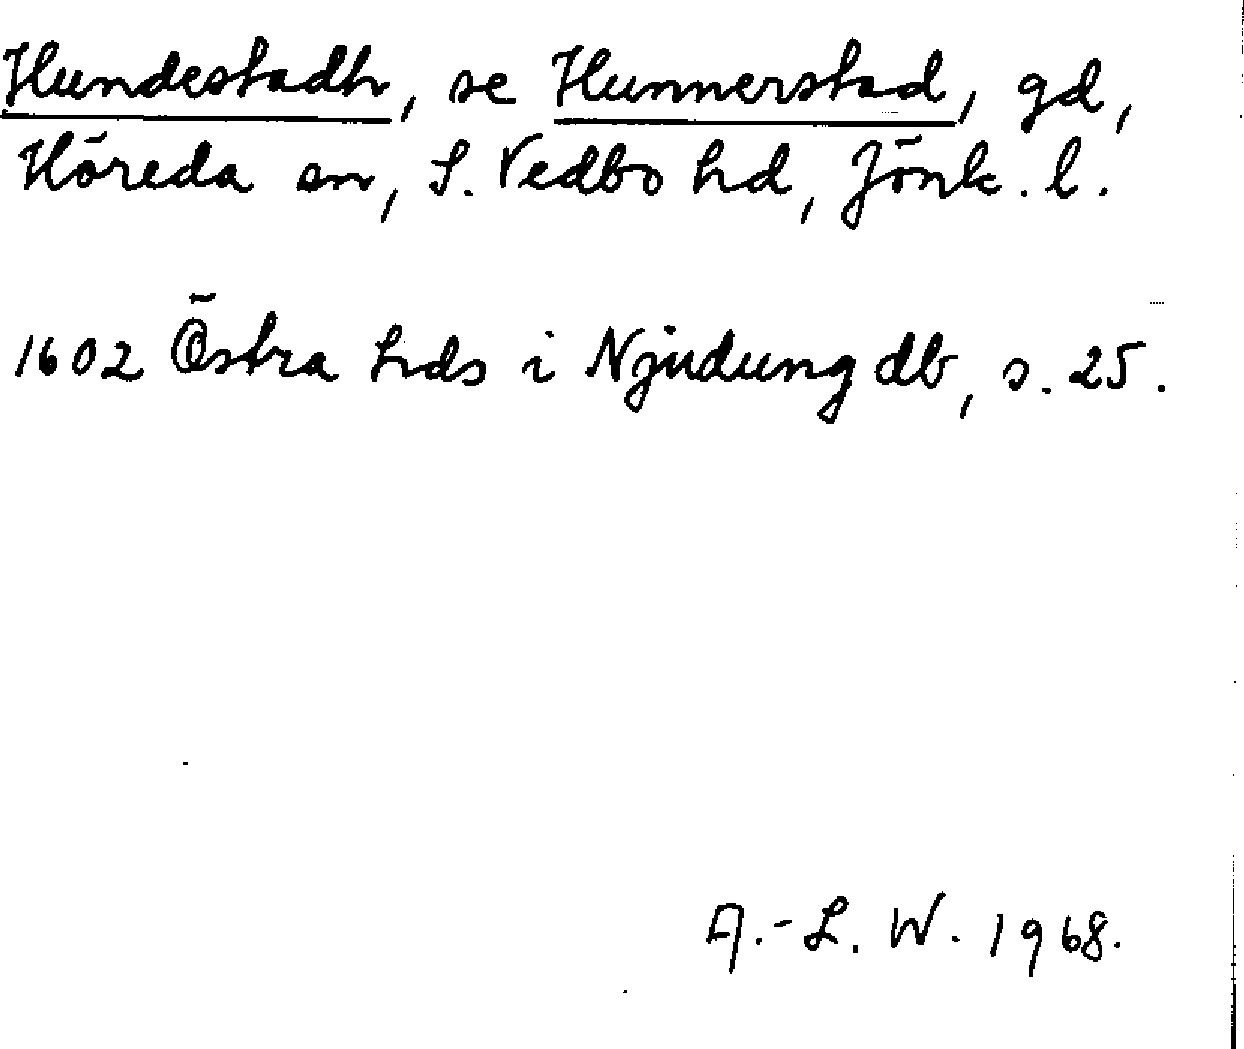 Hundestadh, se Hunnerstad, gd,
Höreda sn, S. Vedbo hd, Jönk. l.
1602 Östra hds i Njudung db, s. 25.
A.-L. W. 1968.